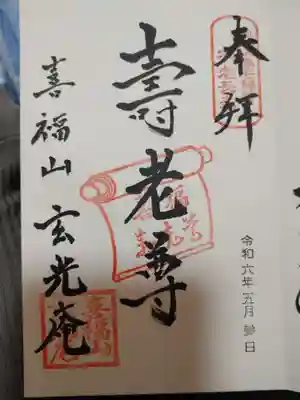 奉拝
壽老尊
喜福山 玄光庵
令和六年五月 日